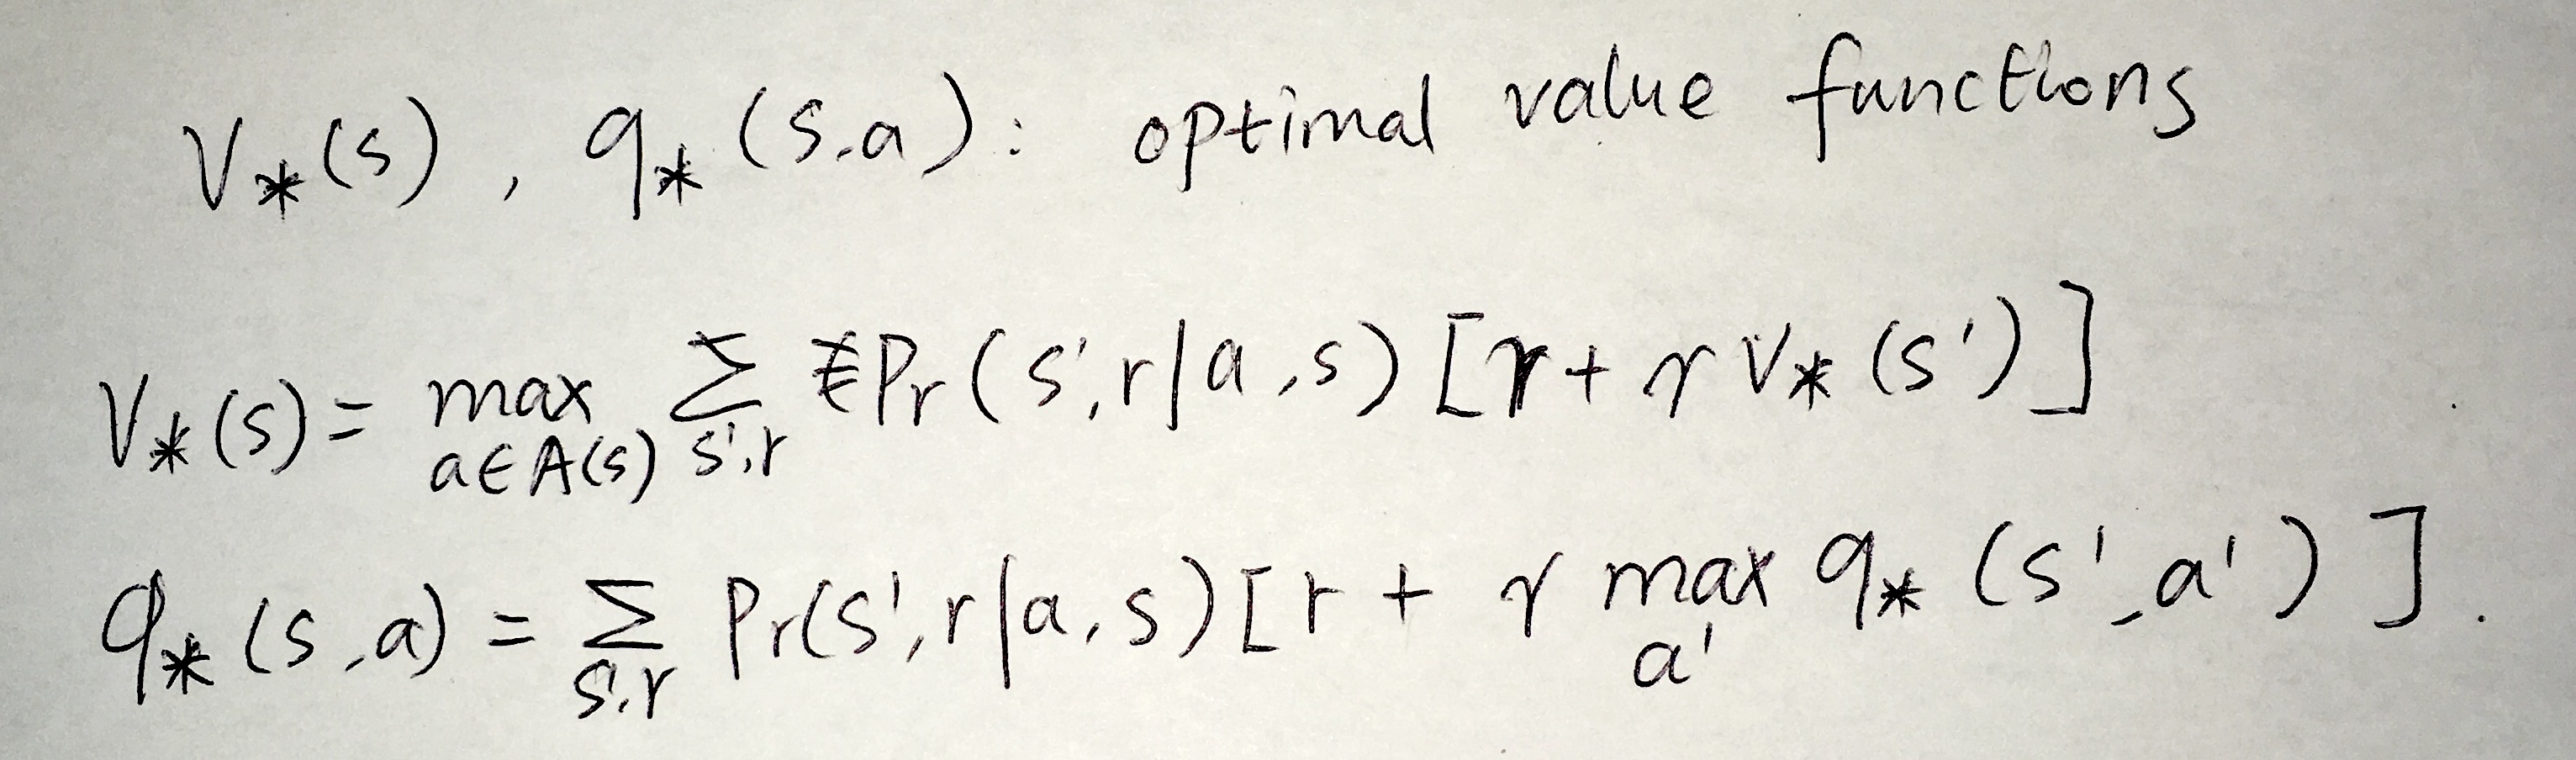 V*(s), q*(s,a): optimal value functions
V*(s) = max_{a∈A(s)} Σ_{s',r} Pr(s',r|a,s)[r + γ V*(s')]
q*(s,a) = Σ_{s',r} Pr(s',r|a,s)[r + γ max_{a'} q*(s',a')].